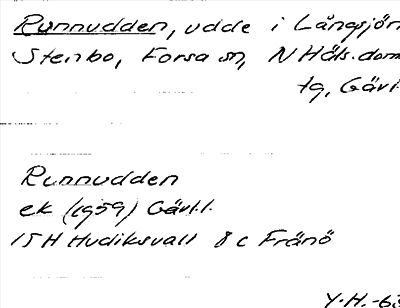 Runnudden, udde i Långsjön
Stenbo, Forsa sn, N Häls. doms
tg, Gävl.
Runnudden
ek (1959) Gävl.l.
15H Hudiksvall 8c Frånö
Y.H.-63